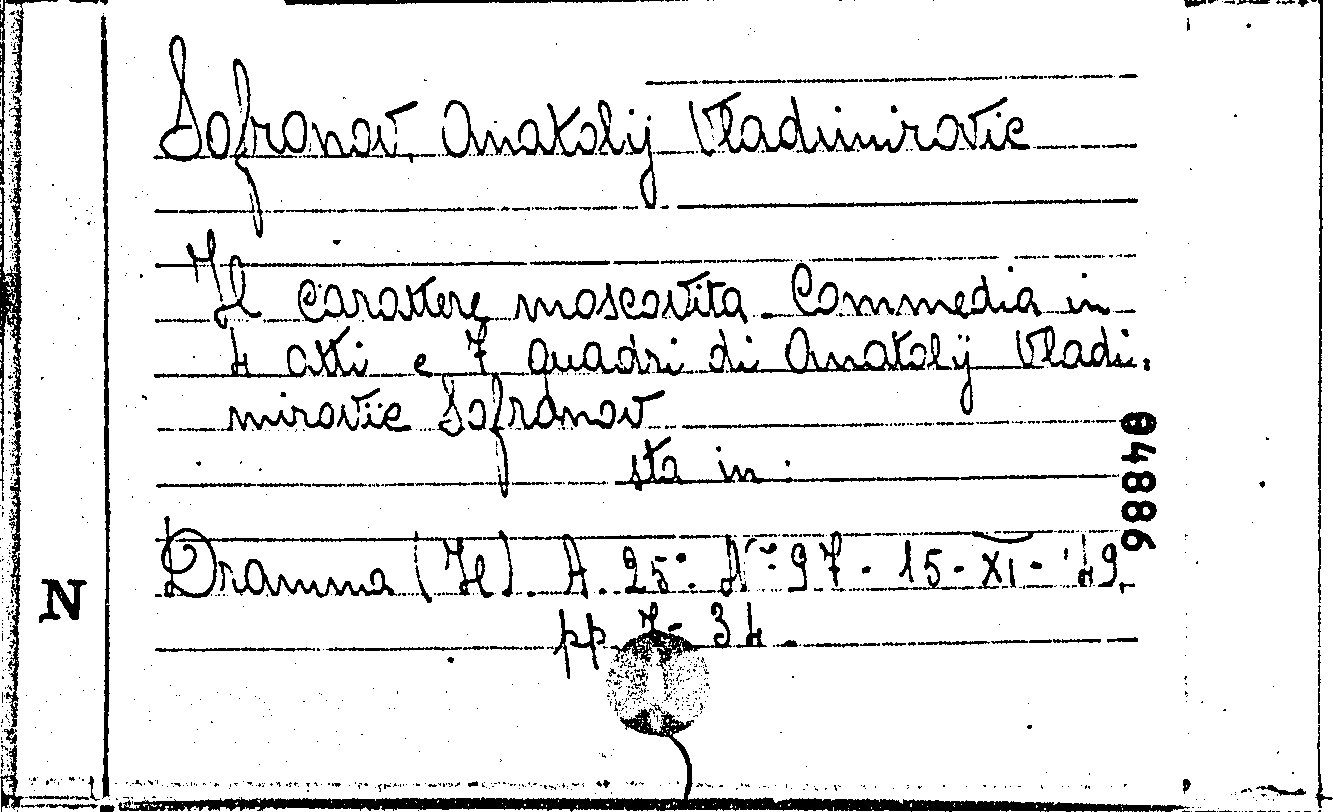 Sofronov, Anatolij Vladimirovic
Il carattere moscovita. Commedia in
4 atti e 7 quadri di Anatolij Vladi:
mirovic Sofronov
sta in:
Dramma (Il). A. 25°. N° 97. 15-XI-'49.
pp 7-34.
N
04886